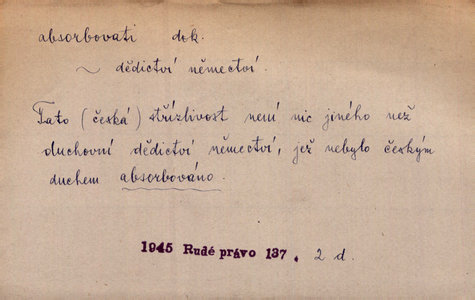 absorbovati dok.
~ dědictví němectví.
Tato (česká) střízlivost není nic jiného než
duchovní dědictví němectví, jež nebylo českým
duchem absorbováno.
1945 Rudé právo 137. 2 d.